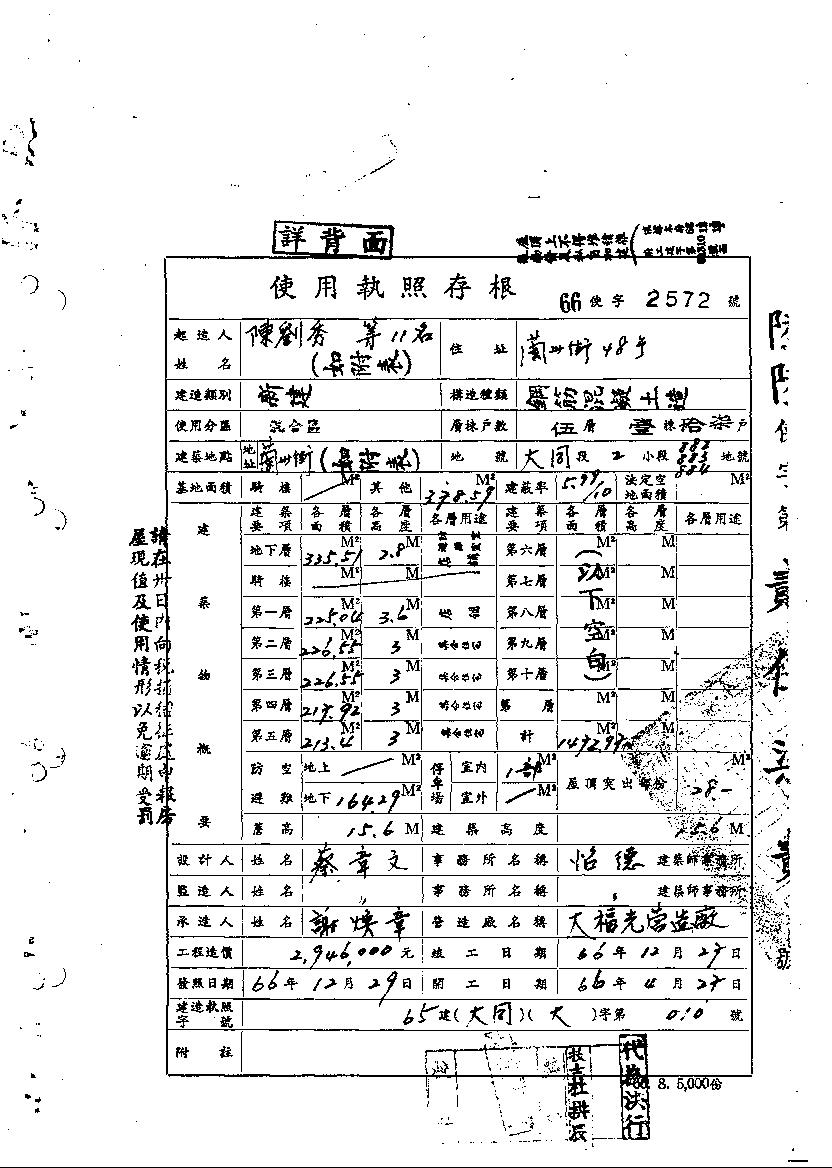 詳背面
使用執照存根
66 使字 2572 號
起造人姓名 陳劉秀 等11名 (如附表) 住址 蘭州街48号
建造類別 新建 構造種類 鋼筋混凝土造
使用分區 混合區 層棟戶數 伍層 壹棟 拾柒戶
建築地點 地址 蘭州街(如附表) 地號 大同段 2 小段 882 883 884 地號
基地面積 騎樓 M² 其他 378.59 M² 建蔽率 5.99/10 法定空地面積 M²
建築物概要 建築要項 各層面積 各層高度 各層用途 建築要項 各層面積 各層高度 各層用途
地下層 335.51 M² 2.8 M 第六層 M² M
騎樓 M² M 第七層 M² M
第一層 225.04 M² 3.6 M 店舖 第八層 M² M
第二層 226.55 M² 3 M 第九層 M² M
第三層 226.55 M² 3 M 第十層 M² M
第四層 M² 3 M 第 層 M² M
第五層 213.4 M² 3 M 計 M²
(以下空白)
防空避難 地上 M² 停車場 室內 M² 屋頂突出部份 28.- M²
地下 164.29 M² 室外 M²
簷高 15.6 M 建築高度 15.6 M
設計人 姓名 蔡章文 事務所名稱 怡德 建築師事務所
監造人 姓名 事務所名稱 建築師事務所
承造人 姓名 謝煥章 營造廠名稱 大福光營造廠
工程造價 2,946,000 元 竣工日期 66年12月27日
發照日期 66年12月29日 開工日期 66年4月27日
建造執照字號 65建(大同)(大)字第 010 號
附註
代為決行
8. 5,000份
請在卅日內向稅捐稽征處申報房
屋現值及使用情形以免逾期受罰